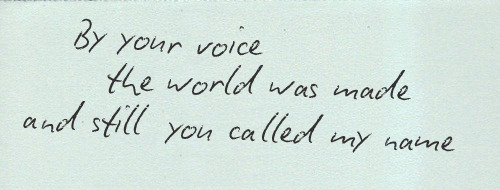 By your voice
the world was made
and still you called my name